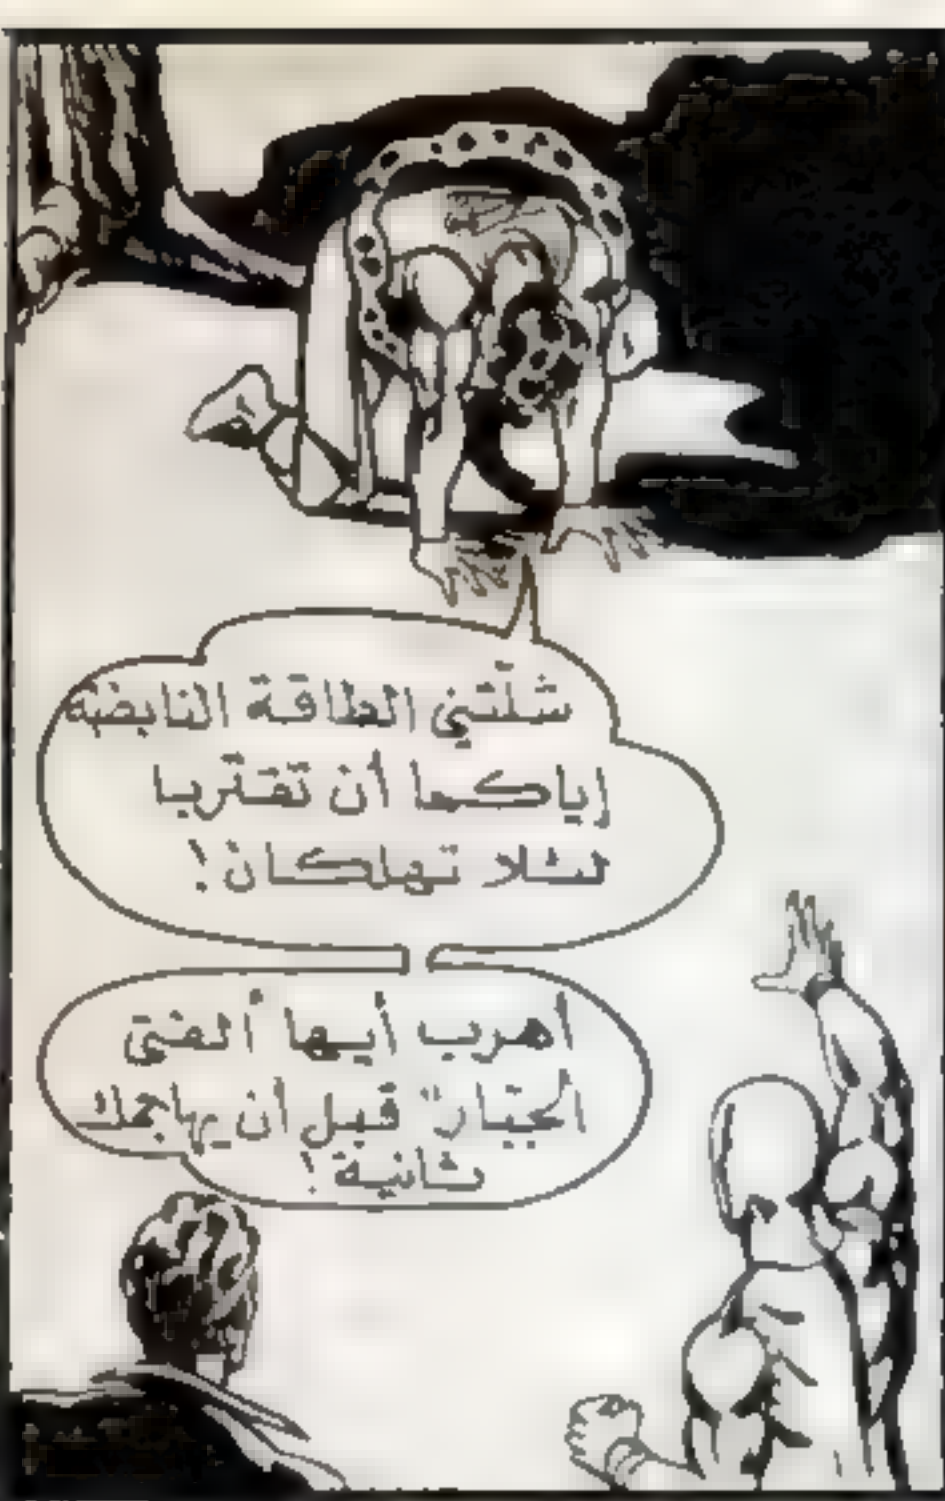 شلّتني الطاقة النابضة
إياكما أن تقتربا
لئلا تهلكان!
أهرب أيها ألفتى
ألجبّار" قبل أن يهاجمك
ثانية!